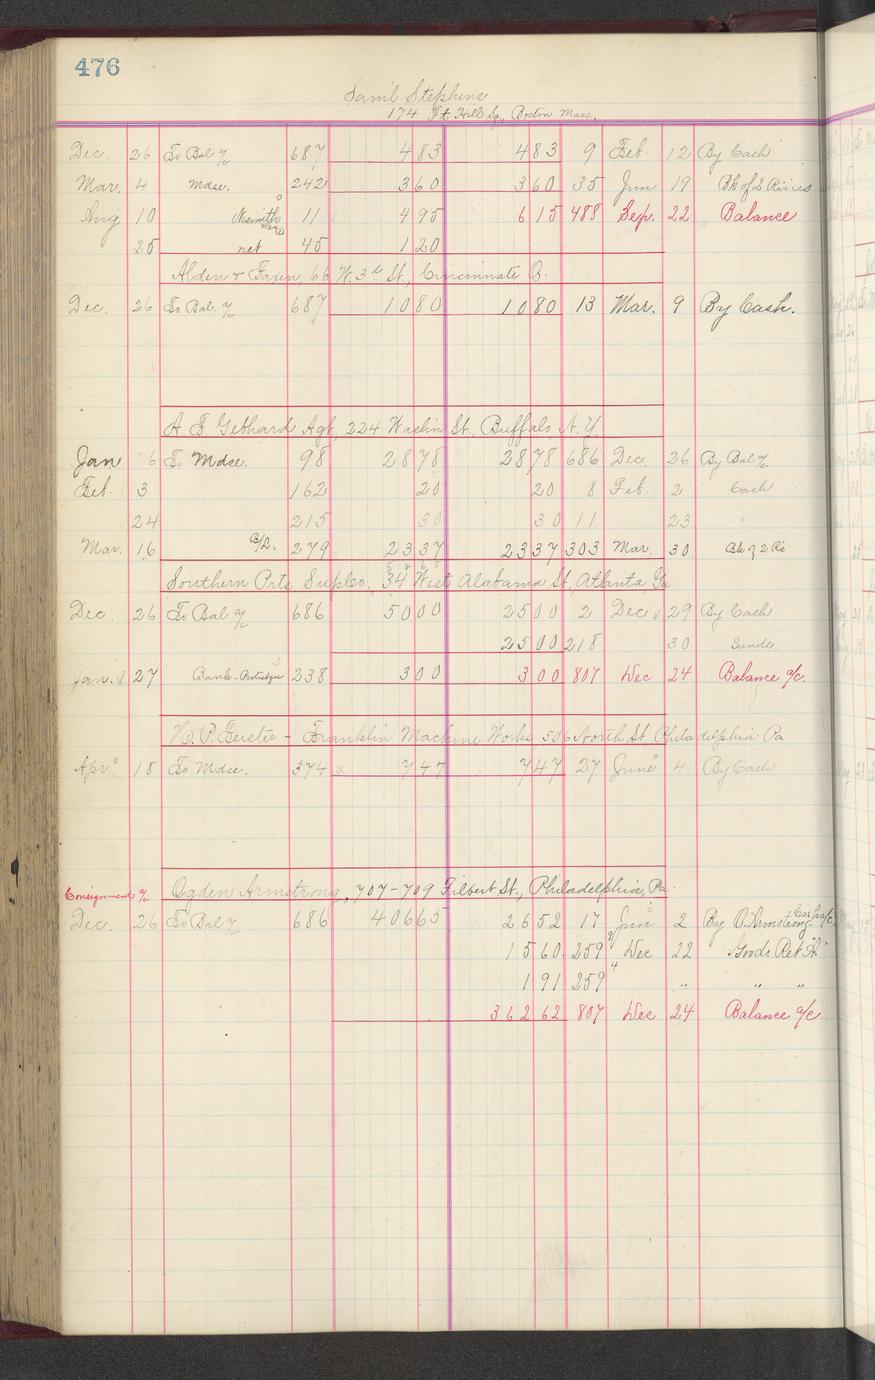 476
Sam'l Stephens
174 Ft Hill Sq., Boston Mass.
Dec. 26 To Bal % 687 483 483 9 Feb. 12 By Cash
Mar. 4 Mdse. 242 360 360 35 Jun 19 Bk of 2 Rivers
Aug 10 Nesmith 11 495 615 488 Sep. 22 Balance
25 net 45 120
Alden & Faxen, 66 W. 3rd St., Cincinnati O.
Dec. 26 To Bal. % 687 1080 1080 13 Mar. 9 By Cash.
A. F. Gebhard Agt, 224 Washn St., Buffalo N.Y.
Jan 6 To Mdse. 98 2878 2878 686 Dec. 26 By Bal %
Feb. 3 162 20 20 8 Feb. 2 Cash
24 215 30 30 11 23 "
Mar. 16 279 2337 2337 303 Mar. 30 Bk of 2 Ri
Southern Prtg Suplco., 34 West Alabama St, Atlanta Ga
Dec. 26 To Bal % 686 5000 2500 2 Dec 29 By Cash
2500 218 30
Jan. 27 238 300 300 807 Dec 24 Balance a/c.
H. P. - Franklin Machine Works, 506 North St, Philadelphia Pa
Apr. 18 To Mdse. 374 x 747 747 27 June 4 By Cash
Consignment % Ogden Armstrong, 707-709 Filbert St., Philadelphia, Pa.
Dec. 26 To Bal % 686 40665 2652 17 Jun 2 By O. Armstrong
1560. 259 Dec 22 Goods Ret
191 259 4 " " "
36262 807 Dec 24 Balance a/c